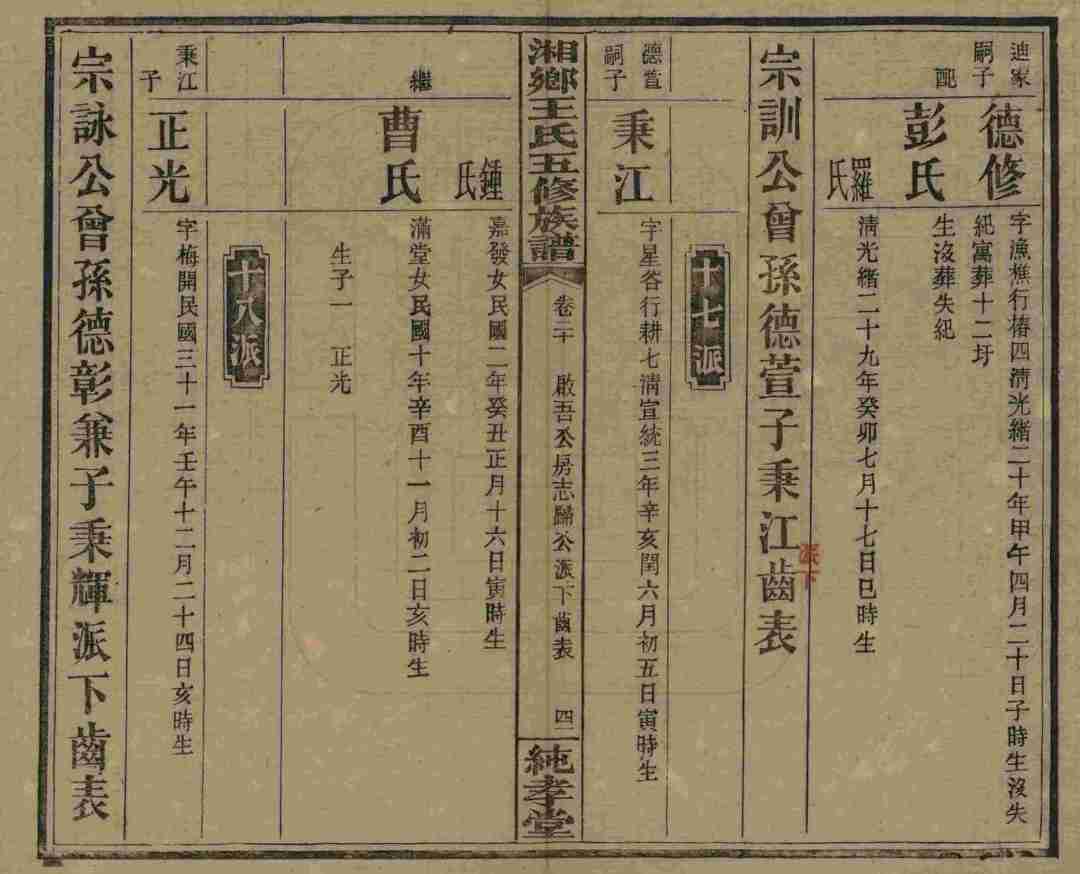 迪家嗣子
德修
字漁樵行椿四清光緒二十年甲午四月二十日子時生沒失
紀寓葬十二圩
配
彭氏
生沒葬失紀
羅氏
清光緒二十九年癸卯七月十七日巳時生
宗訓公曾孫德萱子秉江齒表
派下
十七派
德萱嗣子
秉江
字星谷行耕七清宣統三年辛亥閏六月初五日寅時生
湘鄉王氏五修族譜
卷二十
啟吾公房志歸公派下齒表
四
純孝堂
鍾氏
嘉發女民國二年癸丑正月十六日寅時生
繼
曹氏
滿堂女民國十年辛酉十一月初二日亥時生
生子一 正光
十八派
秉江子
正光
字梅開民國三十一年壬午十二月二十四日亥時生
宗詠公曾孫德彰兼子秉輝派下齒表